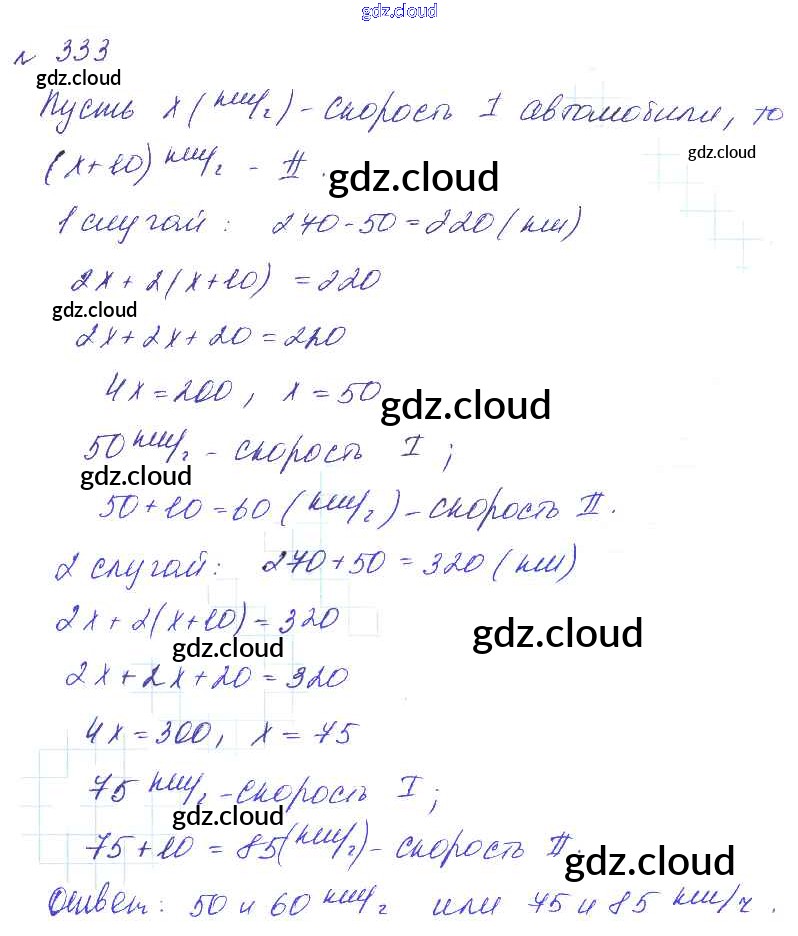 gdz.cloud
№ 333
gdz.cloud
Пусть x (км/г) - скорость I автомобили, то
gdz.cloud
(x+10) км/г - II.
gdz.cloud
1 случай: 270-50=220 (км)
2x + 2(x+10) = 220
gdz.cloud
2x+2x+20=220
4x=200, x=50
gdz.cloud
50 км/г - скорость I;
gdz.cloud
50+10=60 (км/г) - скорость II.
2 случай: 270+50=320 (км)
2x+2(x+10)=320
gdz.cloud
gdz.cloud
2x+2x+20=320
4x=300, x=75
75 км/г - скорость I;
gdz.cloud
75+10=85(км/г) - скорость II.
gdz.cloud
Ответ: 50 и 60 км/г или 75 и 85 км/ч.